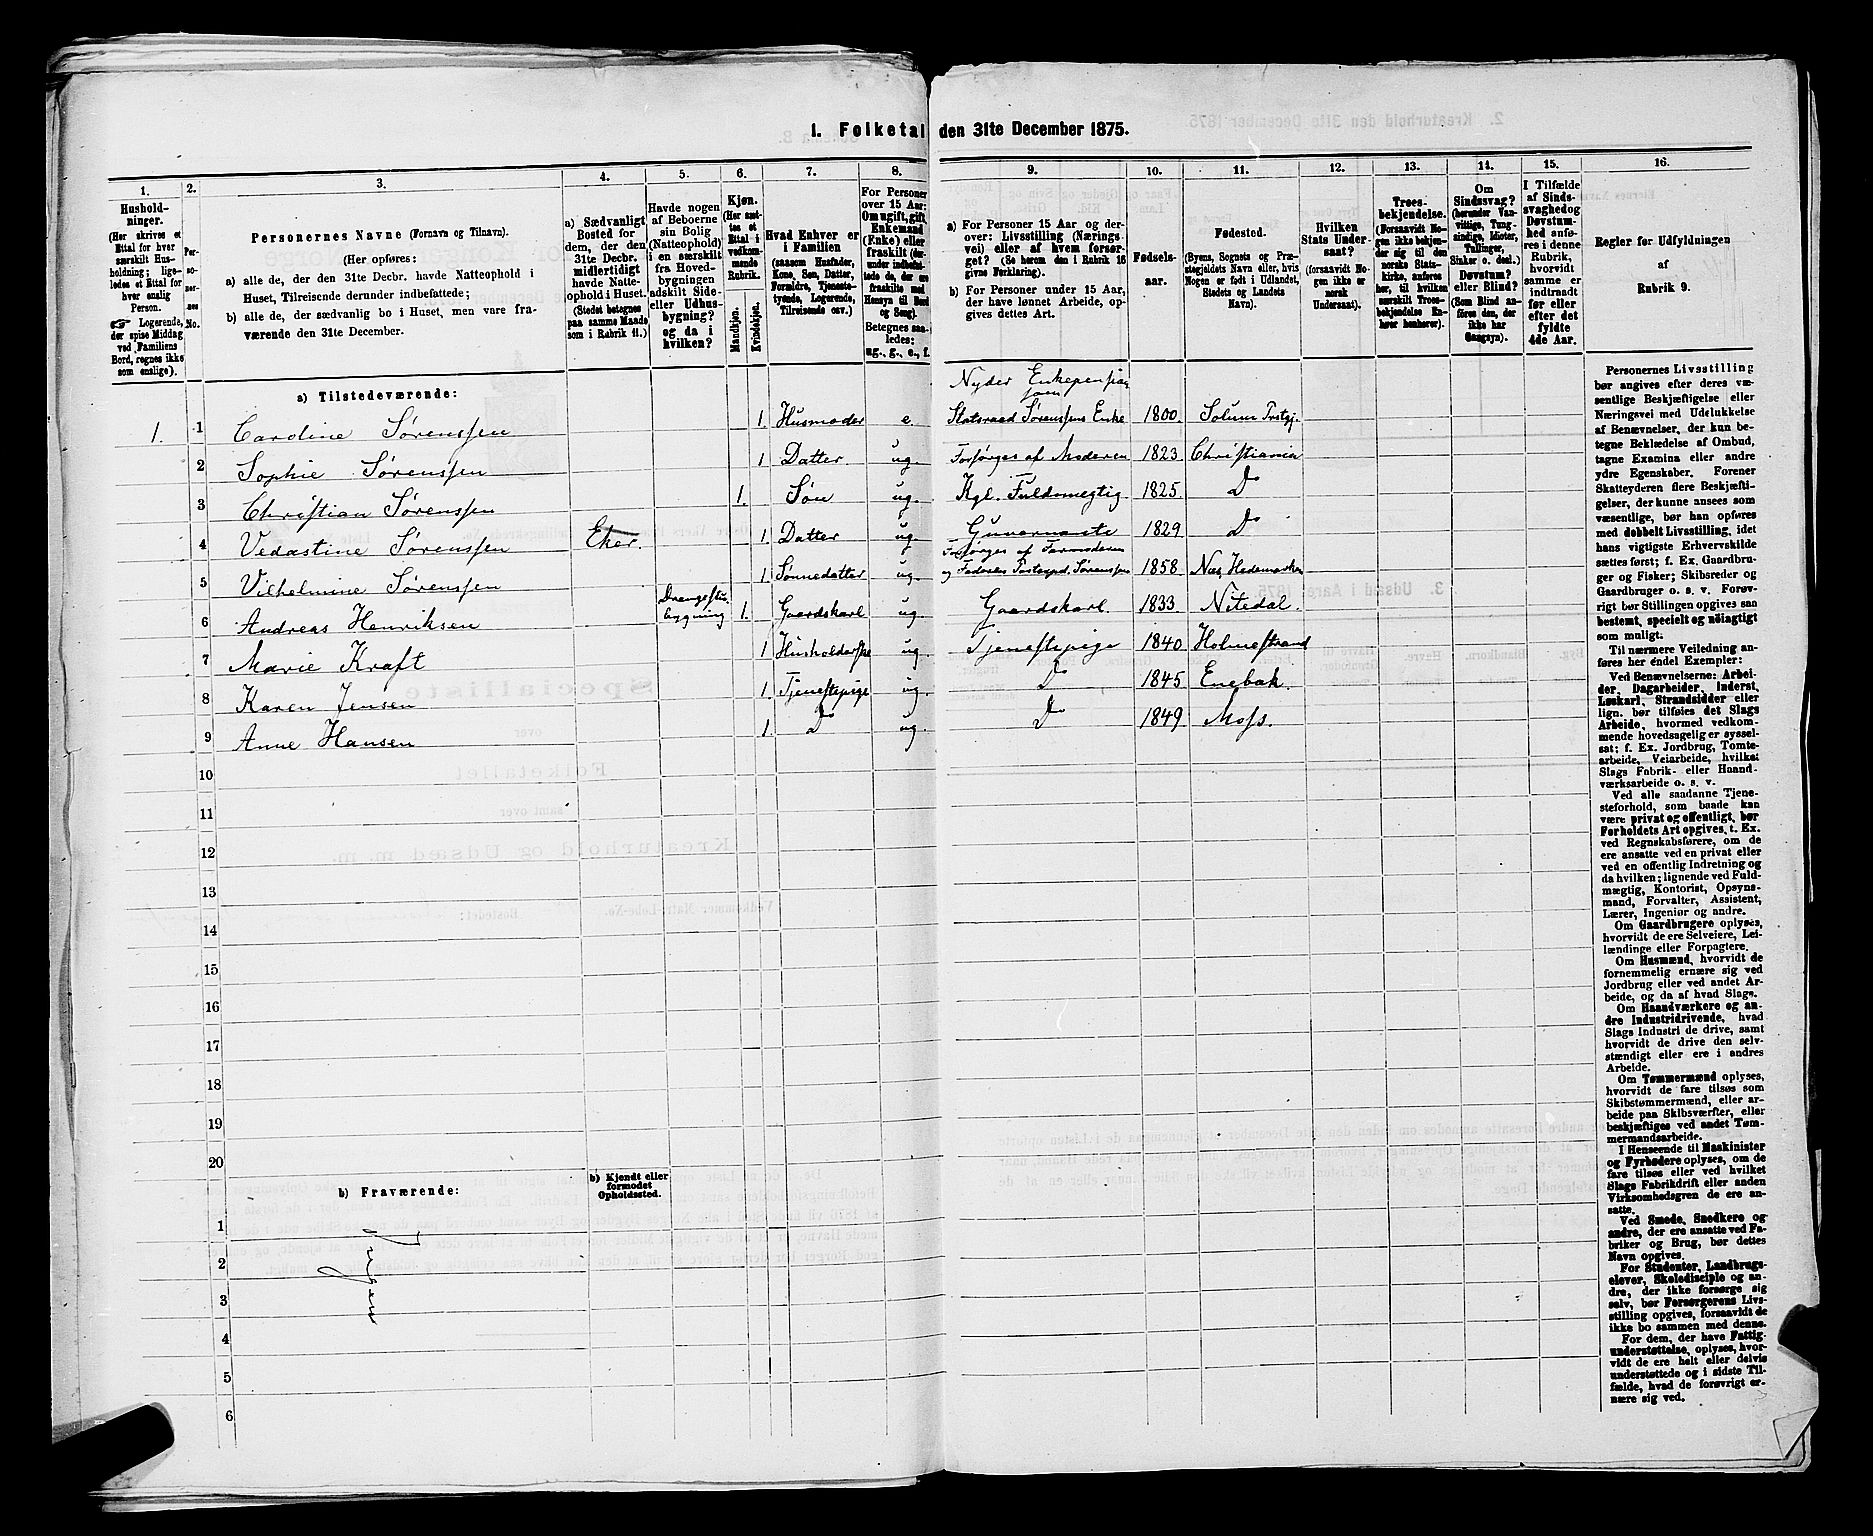 1. Folketal den 31te December 1875.
1. 2. 3. 4. 5. 6. 7. 8. 9. 10. 11. 12. 13. 14. 15. 16.
Hushold-
ninger.
(Her skrives et
Ettal for hver
særskilt Hus-
holdning; lige-
ledes et Ettal for
hver enslig
Person.
Logerende,
der spise Middag
ved Familiens
Bord, regnes ikke
som enslige).
Per-
so-
ner-
nes
No.
Personernes Navne (Fornavn og Tilnavn).
(Her opføres:
a) alle de, der den 31te Decbr. havde Natteophold i
Huset, Tilreisende derunder indbefattede;
b) alle de, der sædvanlig bo i Huset, men vare fra-
værende den 31te December.
a) Sædvanligt
Bosted for
dem, der den
31te Decbr.
midlertidigt
havde Natte-
ophold i Huset.
(Stedet betegnes
paa samme Maade
som i Rubrik 11.)
Havde nogen
af Beboerne
sin Bolig
(Natteophold)
i en særskilt
fra Hoved-
bygningen
adskilt Side-
eller Udhus-
bygning?
og da i
hvilken?
Kjøn.
(Her sæt-
tes et
Ettal i
vedkom-
mende
Rubrik.
Mandkjøn.
Kvindekjøn.
Hvad Enhver er
i Familien
(saasom Husfader,
Kone, Søn, Datter,
Forældre, Tjeneste-
tyende, Logerende,
Tilreisende osv.)
For Personer
over 15 Aar:
Om ugift, gift,
Enkemand
(Enke) eller
fraskilt (der-
under indbefat-
tede de, der ere
fraskilte med
Hensyn til Bord
og Seng).
Betegnes saa-
ledes:
ug., g., e., f.
a) For Personer 15 Aar og der-
over: Livsstilling (Nærings-
vei) eller af hvem forsør-
get? (Se herom den i Rubrik 16
givne Forklaring).
b) For Personer under 15 Aar,
der have lønnet Arbeide, op-
gives dettes Art.
Fødsels-
aar.
Fødested.
(Byens, Sognets og Præ-
stegjeldets Navn eller, hvis
Nogen er født i Udlandet,
Stedets og Landets
Navn).
Hvilken
Stats Under-
saat?
(forsaavidt No-
gen ikke er
norsk
Undersaat).
Troes-
bekjendelse.
(Forsaavidt No-
gen ikke bekjen-
der sig til den
norske Stats-
kirke, anføres
her, til hvilken
særskilt Troes-
bekjendelse En-
hver henhører).
Om
Sindssvag?
(herunder Van-
vittige, Tung-
sindige, Idioter,
Tullinger,
Sinker o. desl.)
Døvstum?
eller Blind?
(Som Blind an-
føres den, der
ikke har
Gangsyn).
I Tilfælde
af Sinds-
svaghed og
Døvstum-
hed anfø-
res i denne
Rubrik,
hvorvidt
samme er
indtraadt
før eller
efter det
fyldte
4de Aar.
Regler for Udfyldningen
af
Rubrik 9.
a) Tilstedeværende:
Nyder Enkepension
som
1. 1 Caroline Sørenssen 1. Husmoder e. Statsraad Sørenssens Enke 1800. Solum Prstgj.
2 Sophie Sørenssen 1 Datter. ug. Forsørges af Moderen 1823 Christiania
3 Christian Sørenssen 1. Søn ug. Kgl. Fuldmægtig 1825. Do
4 Vedastine Sørenssen Eker. 1. Datter ug Guvernante 1829 Do
Forsørges af Farmoderen
5 Vilhelmine Sørenssen 1 Sønnedatter ug. og Faderen Sørenssen 1858 Næs, Hedemarken
6 Andreas Henriksen Drengestue-
bygning 1. Gaardskarl ug Gaardskarl. 1833. Nitedal.
7 Marie Kraft 1 Husholderske ug. Tjenestepige 1840 Holmestrand
8 Karen Jensen 1 Tjenestepige ug. Do 1845 Enebak.
9 Anne Hansen 1. Do ug. Do 1849 Moss.
10
11
12
13
14
15
16
17
18
19
20
b) Fraværende:
b) Kjendt eller
formodet
Opholdssted.
1
2
3
4
5
6
Ingen
Personernes Livsstilling
bør angives efter deres væ-
sentlige Beskjæftigelse eller
Næringsvei med Udelukkelse
af Benævnelser, der kun be-
tegne Beklædelse af Ombud,
tagne Examina eller andre
ydre Egenskaber. Forener
Skatteyderen flere Beskjæfti-
gelser, der kunne ansees som
væsentlige, bør han opføres
med dobbelt Livsstilling, idet
hans vigtigste Erhvervskilde
sættes først; f. Ex. Gaardbru-
ger og Fisker; Skibsreder og
Gaardbruger o. s. v. Forøv-
rigt bør Stillingen opgives saa
bestemt, specielt og nøiagtigt
som muligt.
Til nærmere Veiledning an-
føres her endel Exempler:
Ved Benævnelserne: Arbei-
der, Dagarbeider, Inderst,
Løskarl, Strandsidder eller
lign. bør tilføies det Slags
Arbeide, hvormed vedkom-
mende hovedsagelig er syssel-
sat; f. Ex. Jordbrug, Tomte-
arbeide, Veiarbeide, hvilket
Slags Fabrik- eller Haand-
værksarbeide o. s. v.
Ved alle saadanne Tjene-
steforhold, som baade kan
være privat og offentligt, bør
Forholdets Art opgives, t. Ex.
ved Regnskabsførere, om de
ere ansatte ved en privat eller
ved en offentlig Indretning og
da hvilken; lignende ved Fuld-
mægtig, Kontorist, Opsyns-
mand, Forvalter, Assistent,
Lærer, Ingeniør og andre.
Om Gaardbrugere oplyses,
hvorvidt de ere Selveiere, Lei-
lændinge eller Forpagtere.
Om Husmænd, hvorvidt de
fornemmelig ernære sig ved
Jordbrug eller ved andet Ar-
beide, og da af hvad Slags.
Om Haandværkere og an-
dre Industridrivende, hvad
Slags Industri de drive, samt
hvorvidt de drive den selv-
stændigt eller ere i andres
Arbeide.
Om Tømmermænd oplyses,
hvorvidt de fare tilsøs som
Skibstømmermænd, eller ar-
beide paa Skibsværfter, eller
beskjæftiges ved andet Tøm-
mermandsarbeide.
I Henseende til Maskinister
og Fyrbødere oplyses, om de
fare tilsøs eller ved hvilket
Slags Fabrikdrift eller anden
Virksomhedsgren de ere an-
satte.
Ved Smede, Snedkere og
andre, der ere ansatte ved Fa-
briker og Brug, bør dettes
Navn opgives.
For Studenter, Landbrugs-
elever, Skoledisciple og an-
dre, der ikke forsørge sig
selv, bør Forsørgerens Livs-
stilling opgives, forsaavidt de
ikke bo sammen med denne.
For dem, der have Fattig-
understøttelse, oplyses, hvor-
vidt de ere helt eller delvis
understøttede og i sidste Til-
fælde, hvad de forøvrigt er-
nære sig ved.